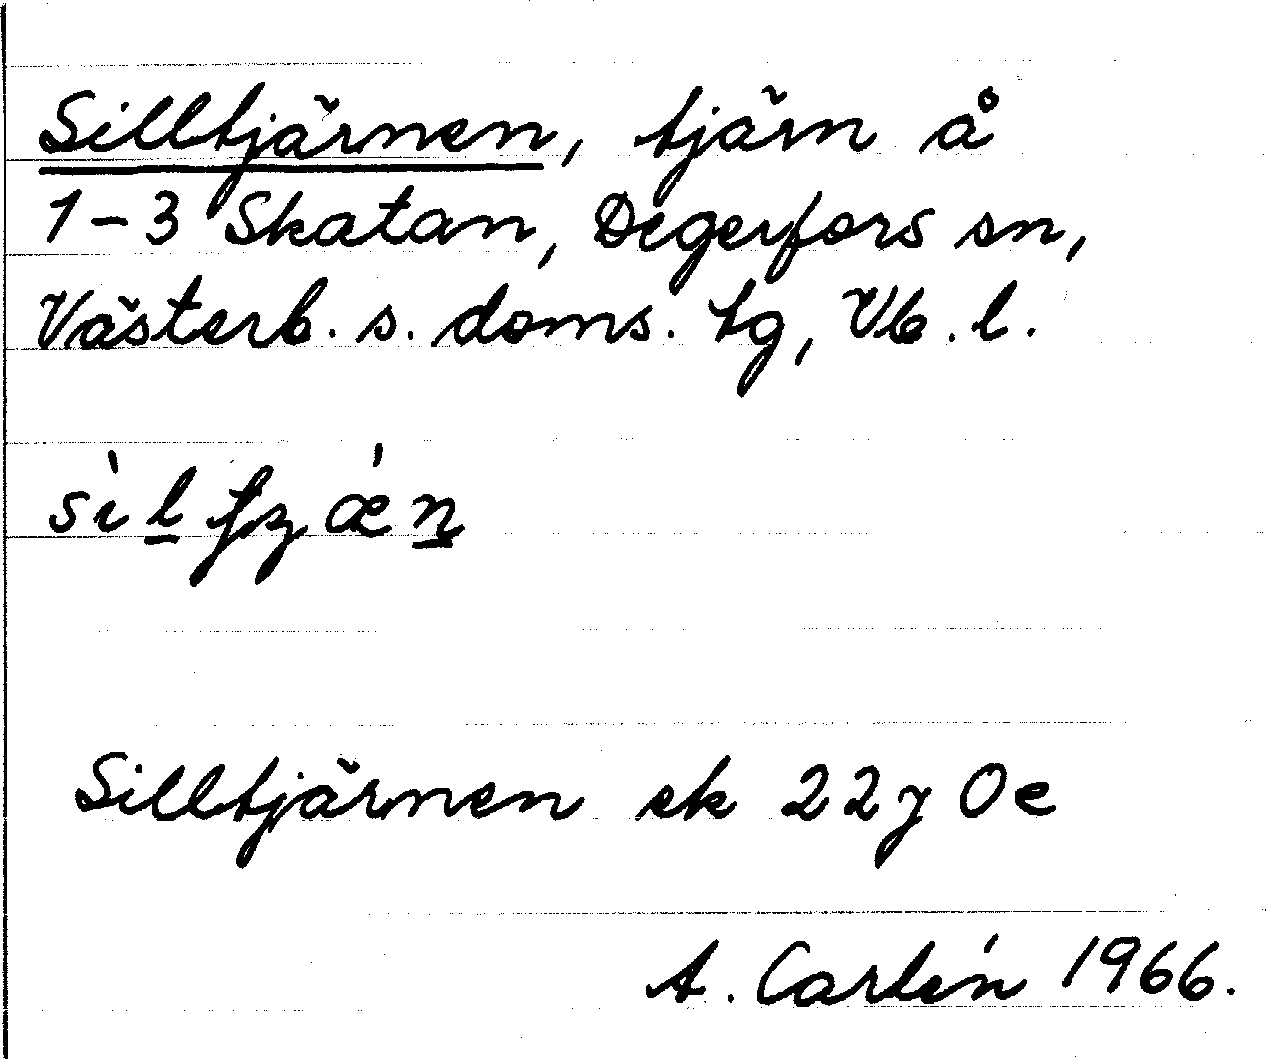 Silltjärnen, tjärn å
1-3 Skatan, Degerfors sn,
Västerb. s. doms. tg, Vb. l.
Silltjärnen ek 22 j 0 e
A. Carlén 1966.